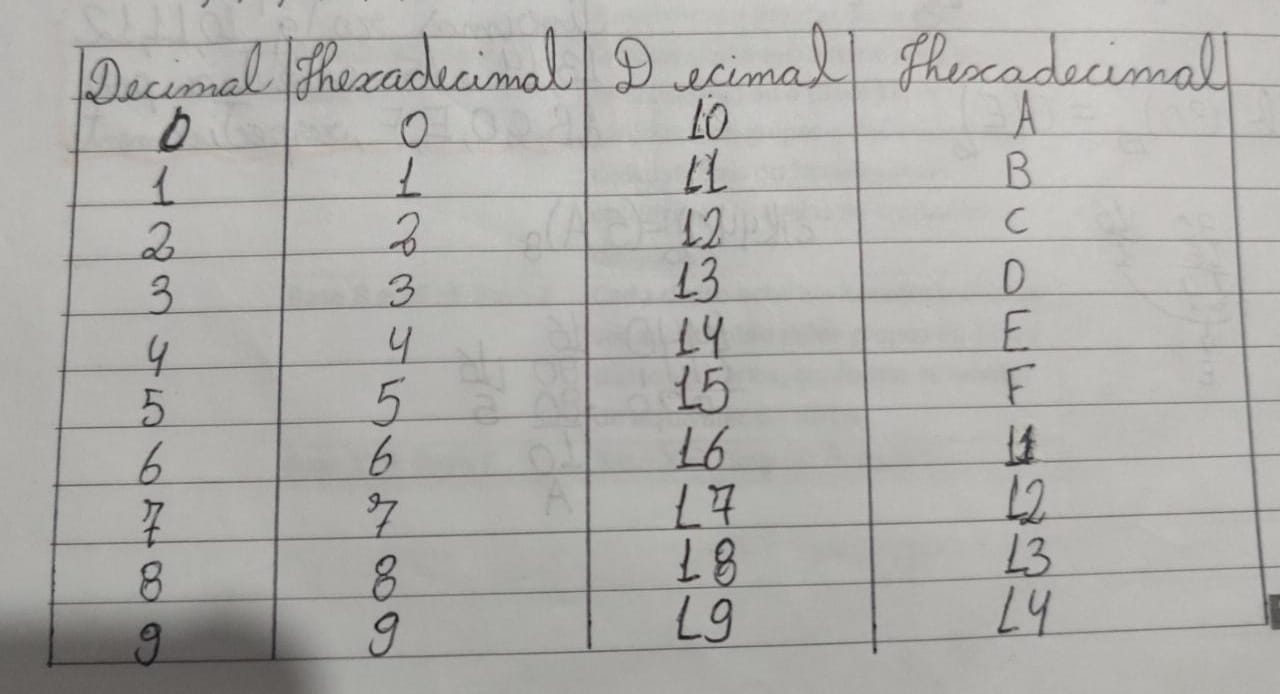 Decimal Hexadecimal Decimal Hexadecimal
0 0 10 A
1 1 11 B
2 2 12 C
3 3 13 D
4 4 14 E
5 5 15 F
6 6 16 11
7 7 17 12
8 8 18 13
9 9 19 14